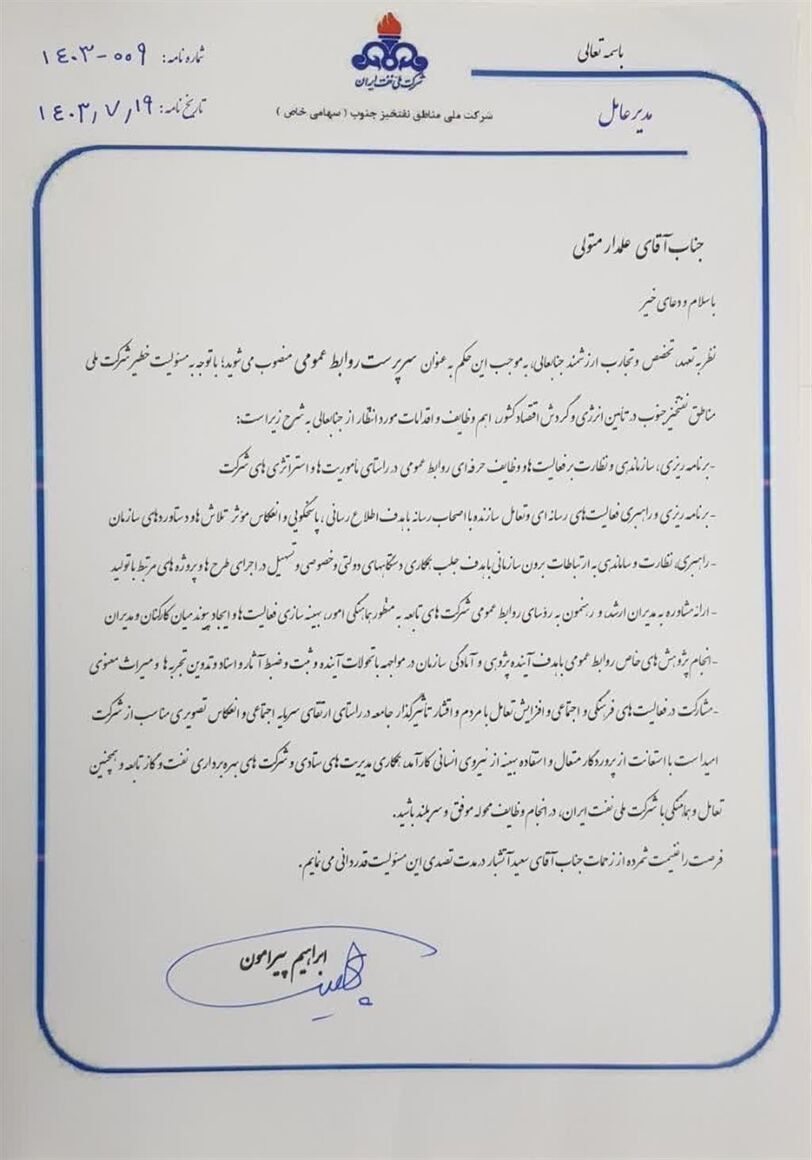 باسمه تعالی
مدیر عامل
شرکت ملی نفت ایران
شرکت ملی مناطق نفتخیز جنوب ( سهامی خاص )
شماره نامه: ۱۴۰۳-۰۰۹
تاریخ نامه: ۱۴۰۳٫۷٫۱۹
جناب آقای علمدار متولی
با سلام و دعای خیر
نظر به تعهد، تخصص و تجارب ارزشمند جنابعالی، به موجب این حکم به عنوان سرپرست روابط عمومی منصوب می شوید؛ با توجه به مسئولیت خطیر شرکت ملی
مناطق نفتخیز جنوب در تأمین انرژی و گردش اقتصاد کشور، اهم وظایف و اقدامات مورد انتظار از جنابعالی به شرح زیر است:
-برنامه ریزی، سازماندهی و نظارت بر فعالیت ها و وظایف حرفه ای روابط عمومی در راستای مأموریت ها و استراتژی های شرکت
-برنامه ریزی و راهبری فعالیت های رسانه ای و تعامل سازنده با اصحاب رسانه با هدف اطلاع رسانی ، پاسخگویی و انعکاس مؤثر تلاش ها و دستاوردهای سازمان
-راهبری، نظارت و ساماندهی به ارتباطات برون سازمانی با هدف جلب همکاری دستگاههای دولتی و خصوصی و تسهیل در اجرای طرح ها و پروژه های مرتبط با تولید
-ارائه مشاوره به مدیران ارشد، و رهنمون به رؤسای روابط عمومی شرکت های تابعه به منظور هماهنگی امور، بهینه سازی فعالیت ها و ایجاد پیوند میان کارکنان و مدیران
-انجام پژوهش های خاص روابط عمومی با هدف آینده پژوهی و آمادگی سازمان در مواجهه با تحولات آینده و ثبت و ضبط آثار و اسناد و تدوین تجربه ها و میراث معنوی
-مشارکت در فعالیت های فرهنگی و اجتماعی و افزایش تعامل با مردم و اقشار تأثیرگذار جامعه در راستای ارتقای سرمایه اجتماعی و انعکاس تصویری مناسب از شرکت
امید است با استعانت از پروردگار متعال و استفاده بهینه از نیروی انسانی کارآمد، همکاری مدیریت های ستادی و شرکت های بهره برداری نفت و گاز تابعه و همچنین
تعامل و هماهنگی با شرکت ملی نفت ایران، در انجام وظایف محوله موفق و سربلند باشید.
فرصت را غنیمت شمرده از زحمات جناب آقای سعید آتشبار در مدت تصدی این مسئولیت قدردانی می نمایم.
ابراهیم پیرامون